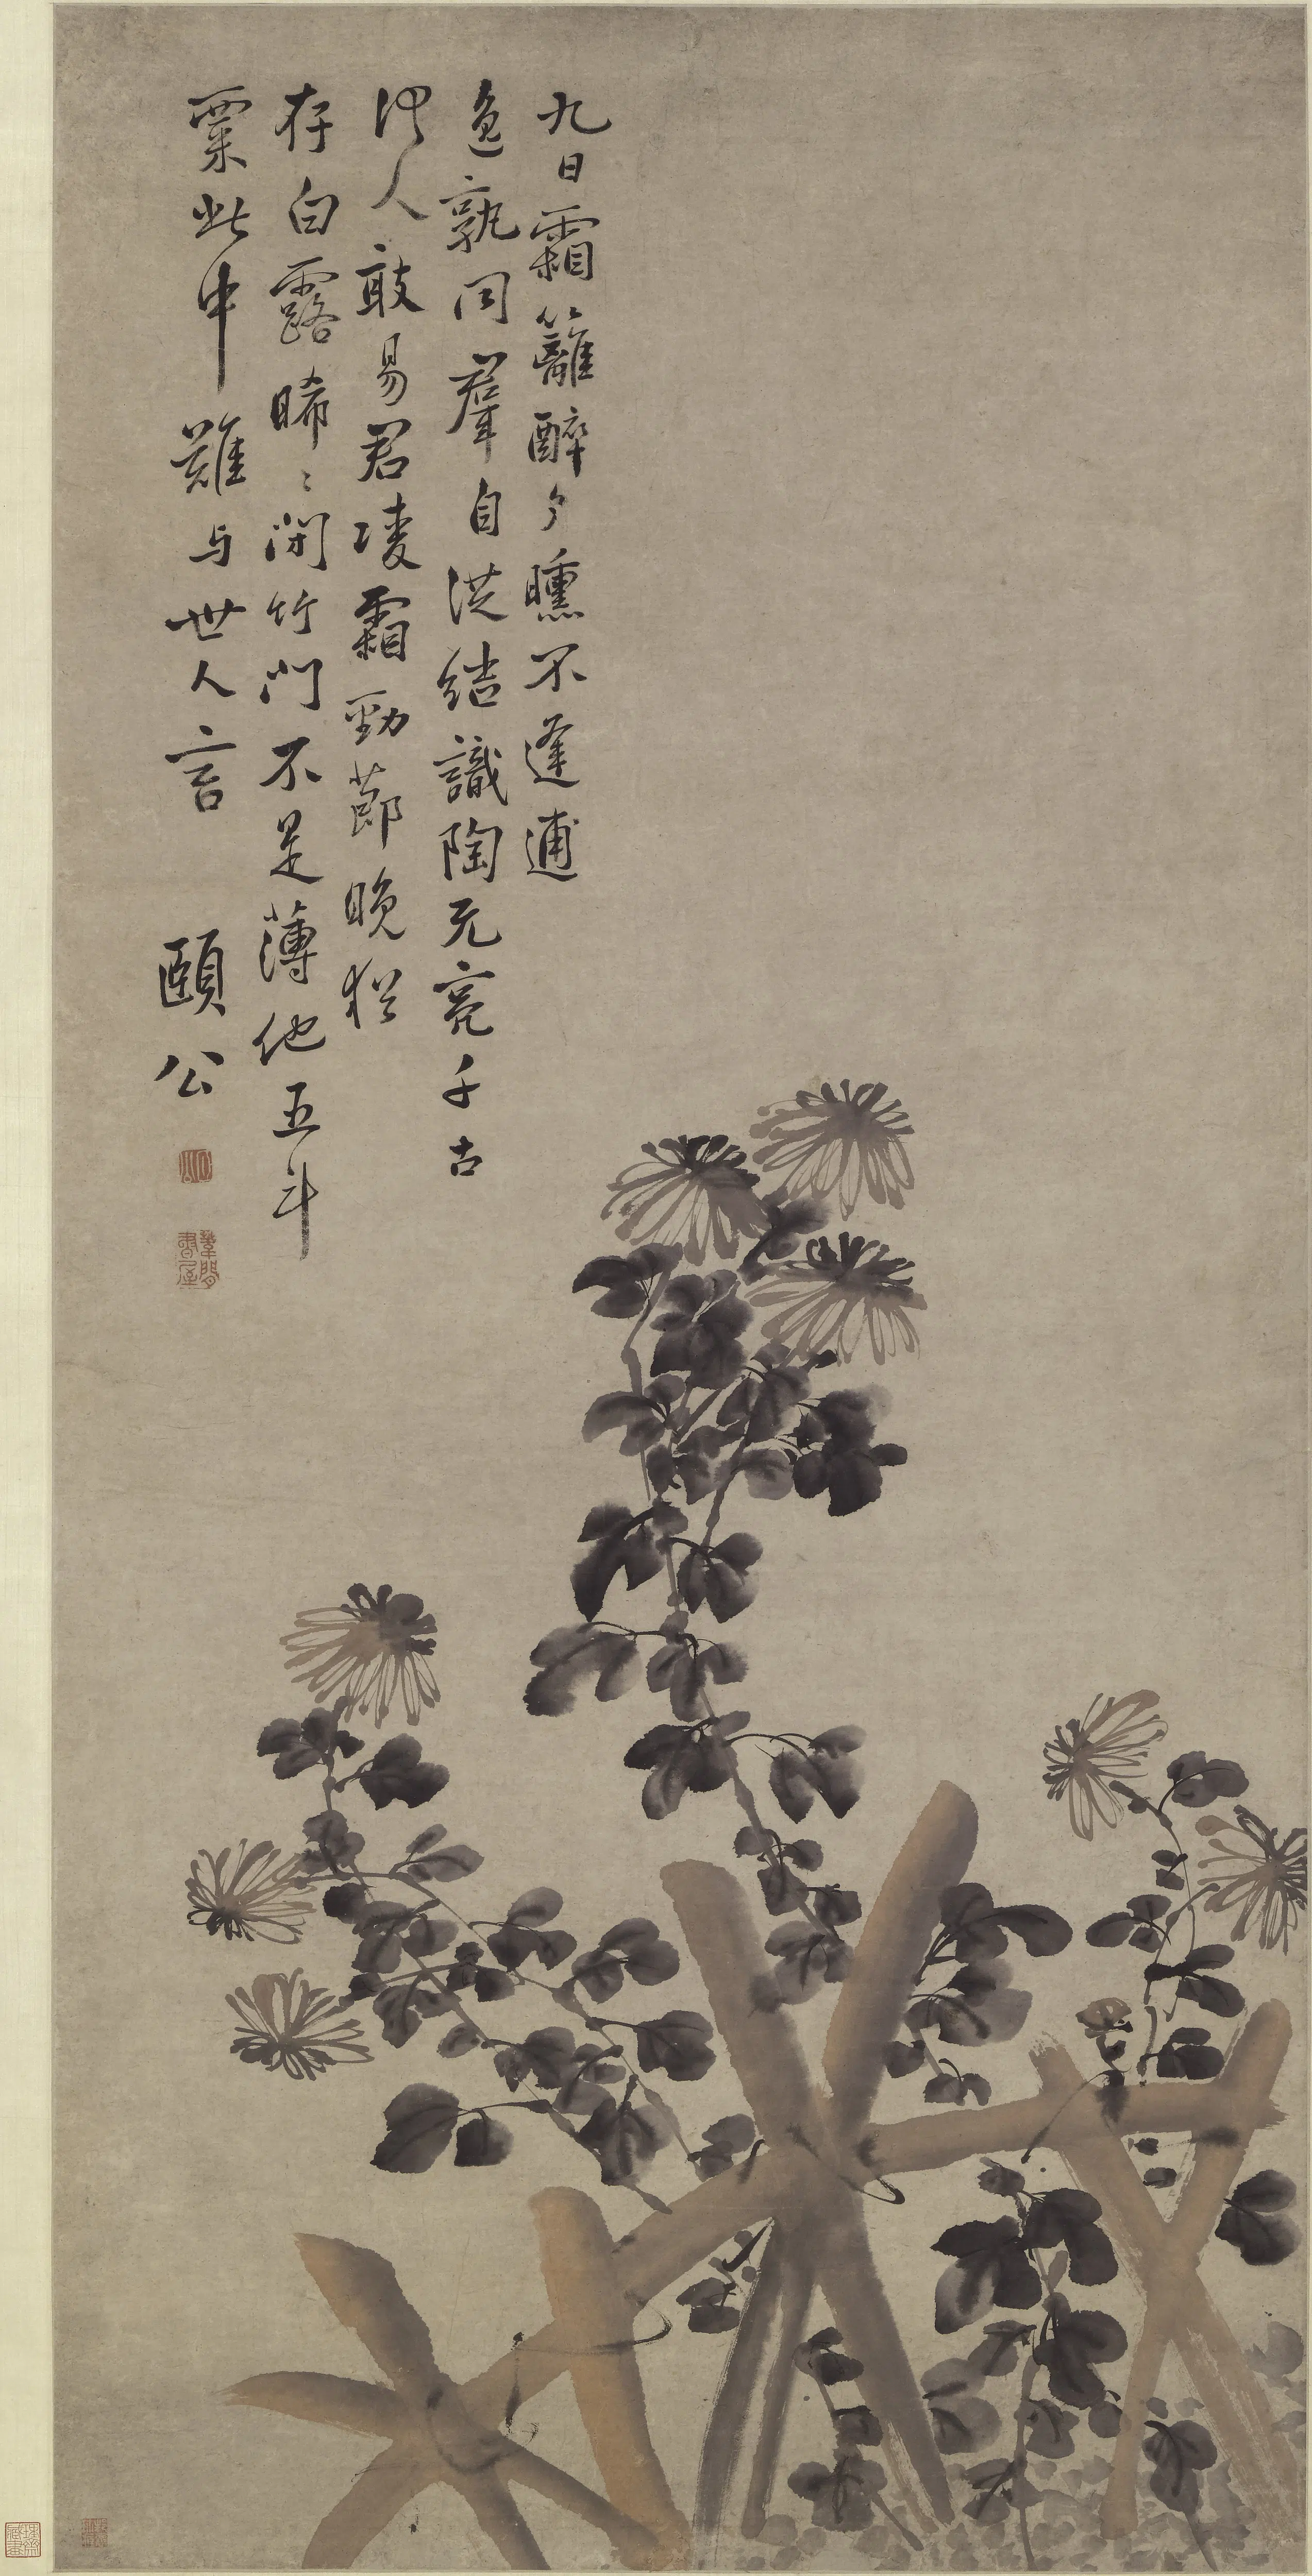 九日霜籬醉夕曛不逢逋
逸孰同羣自從結識陶元亮千古
何人敢易君凌霜勁節晚猶
存白露晞〻閉竹門不是薄他五斗
粟此中難与世人言 頤公
葦間書屋